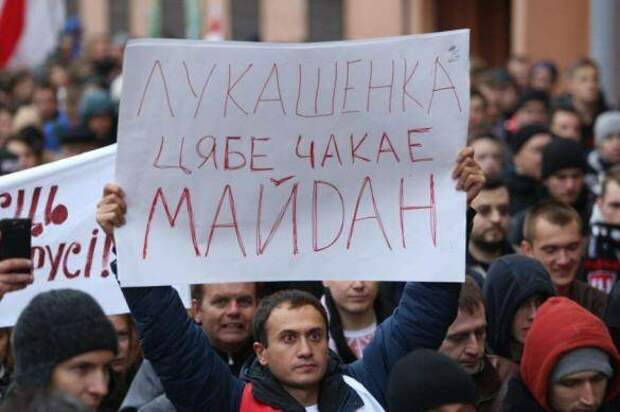 ЛУКАШЕНКА
ЦЯБЕ ЧАКАЕ
МАЙДАН